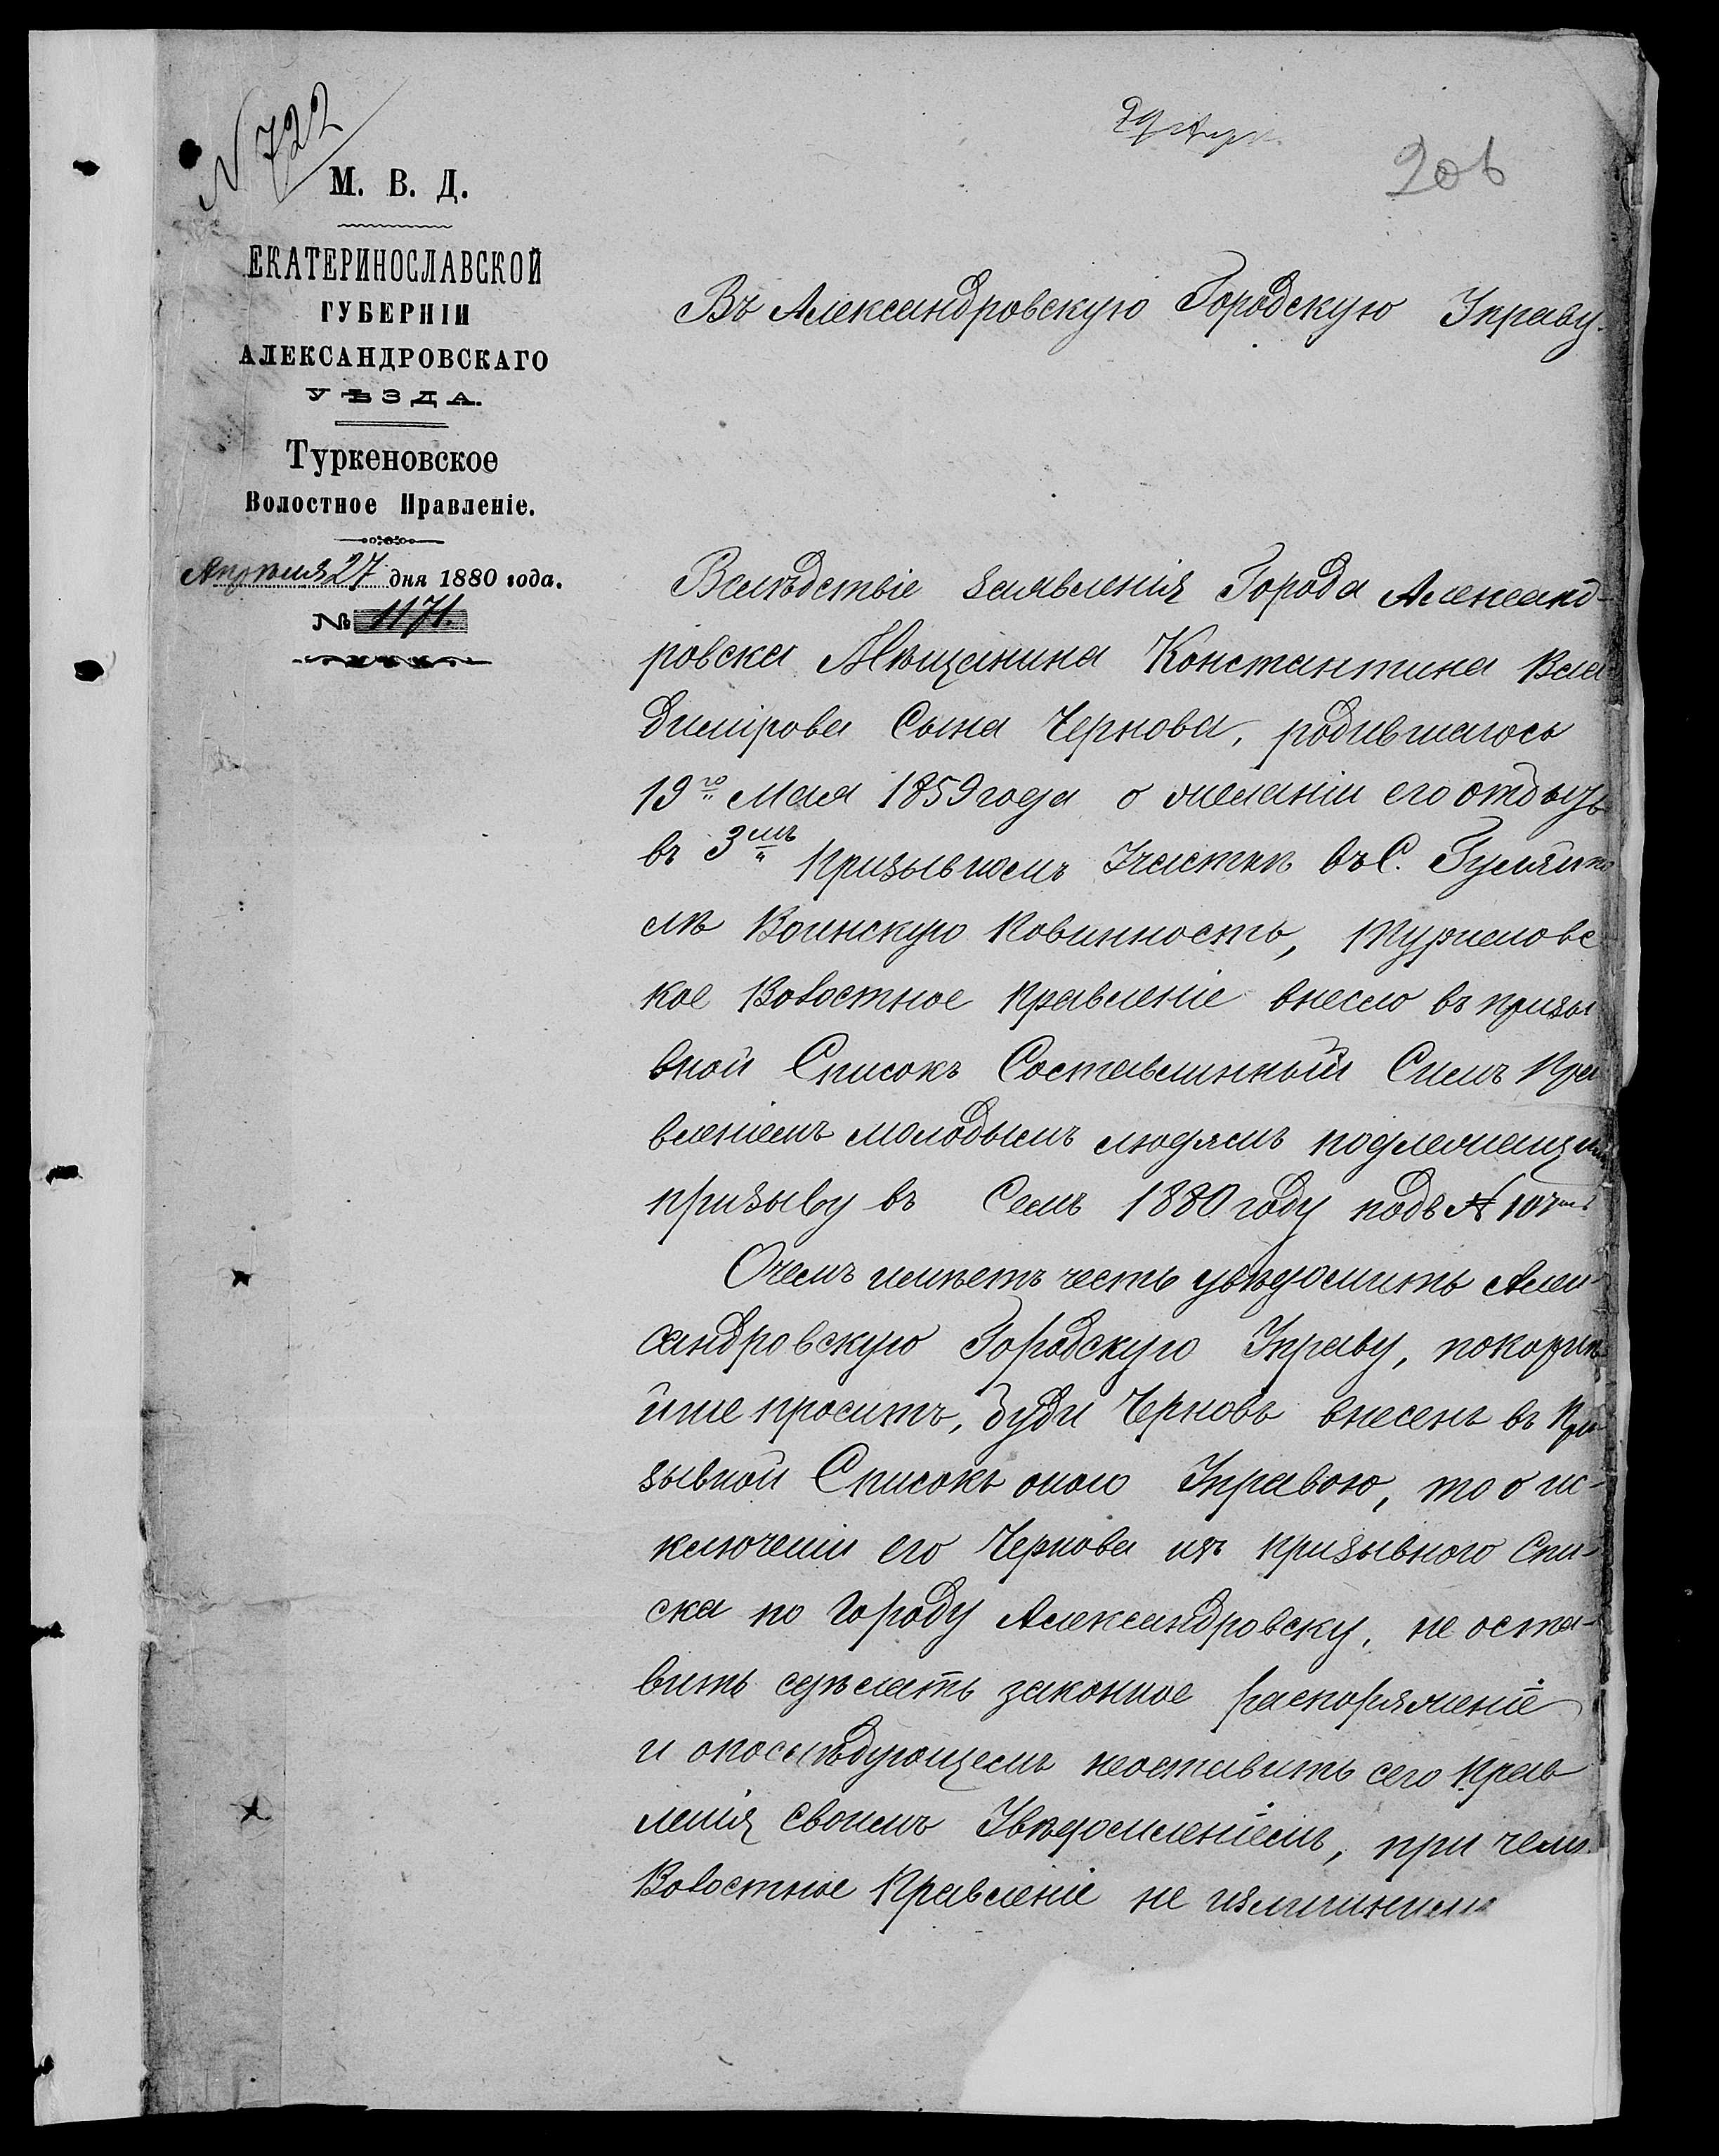 N 722
29 Апр.
206
М. В. Д.
ЕКАТЕРИНОСЛАВСКОЙ
ГУБЕРНІИ
АЛЕКСАНДРОВСКАГО
УѢЗДА.
Туркеновское
Волостное Правленіе.
Апрѣля 27 дня 1880 года.
№ 1171.
Въ Александровскую Городскую Управу.
Вслѣдствіе заявленія Города Александ-
ровска Мѣщанина Константина Вла-
димірова Сына Чернова, родившагося
19го Мая 1859 года о желаніи его отбыть
въ 3мъ Призывномъ Участкѣ въ С. Гуляйпо
лѣ Воинскую Повинность, Туркеновс
кое Волостное Правленіе внесло въ призы
вной Списокъ Составленный Симъ Пра
вленіемъ молодымъ людямъ подлежащимъ
призыву въ Семъ 1880 году подъ № 107мъ
Очемъ имѣетъ честь увѣдомить Алек-
сандровскую Городскую Управу, покорнѣ
йше проситъ, буди Черновъ внесенъ въ При
зывной Списокъ оною Управою, то о ис-
ключеніи его Чернова изъ призывного Спи-
ска по городу Александровску, не оста-
вить сдѣлать законное распоряженіе
и опослѣдующемъ неоставить сего Прав
ленія Своимъ Увѣдомленіемъ, при чемъ
Волостное Правленіе не излишнимъ